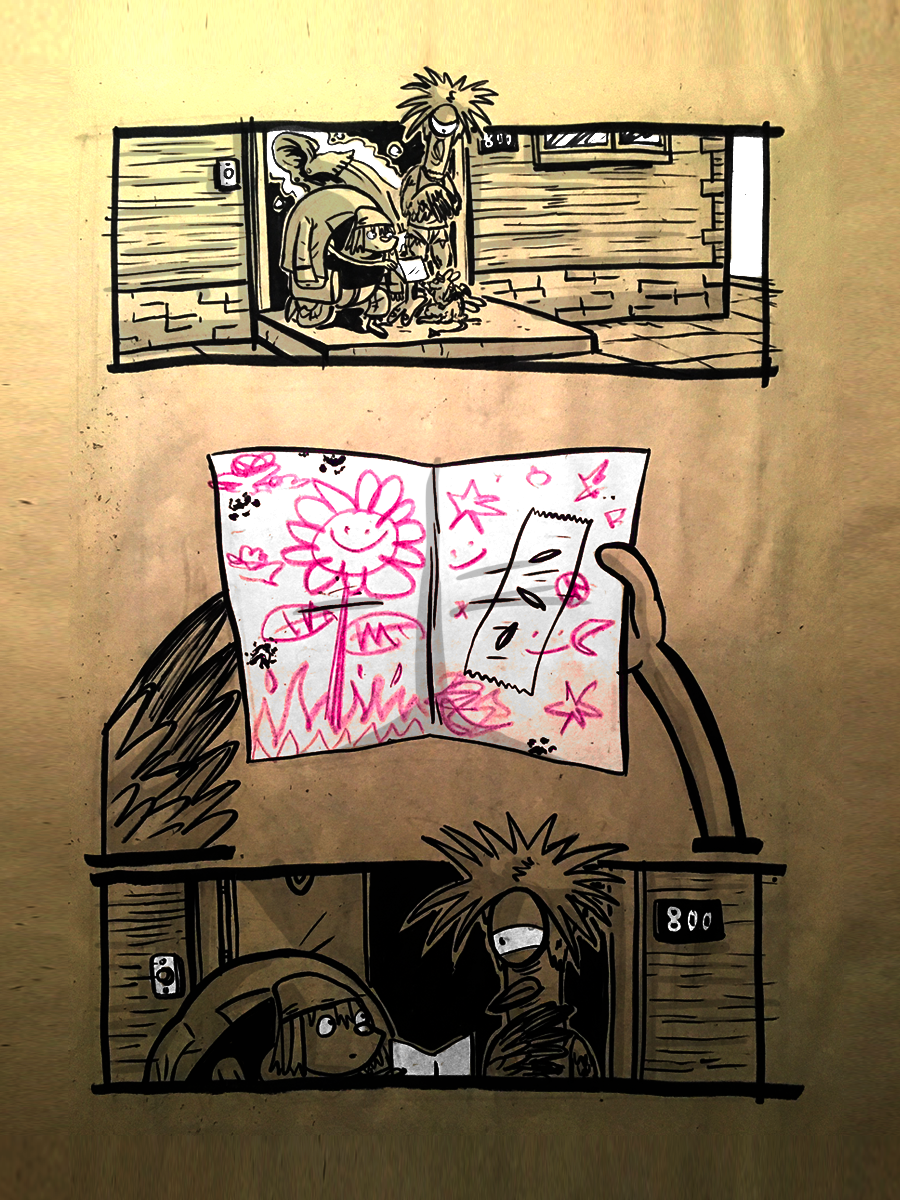 800
800